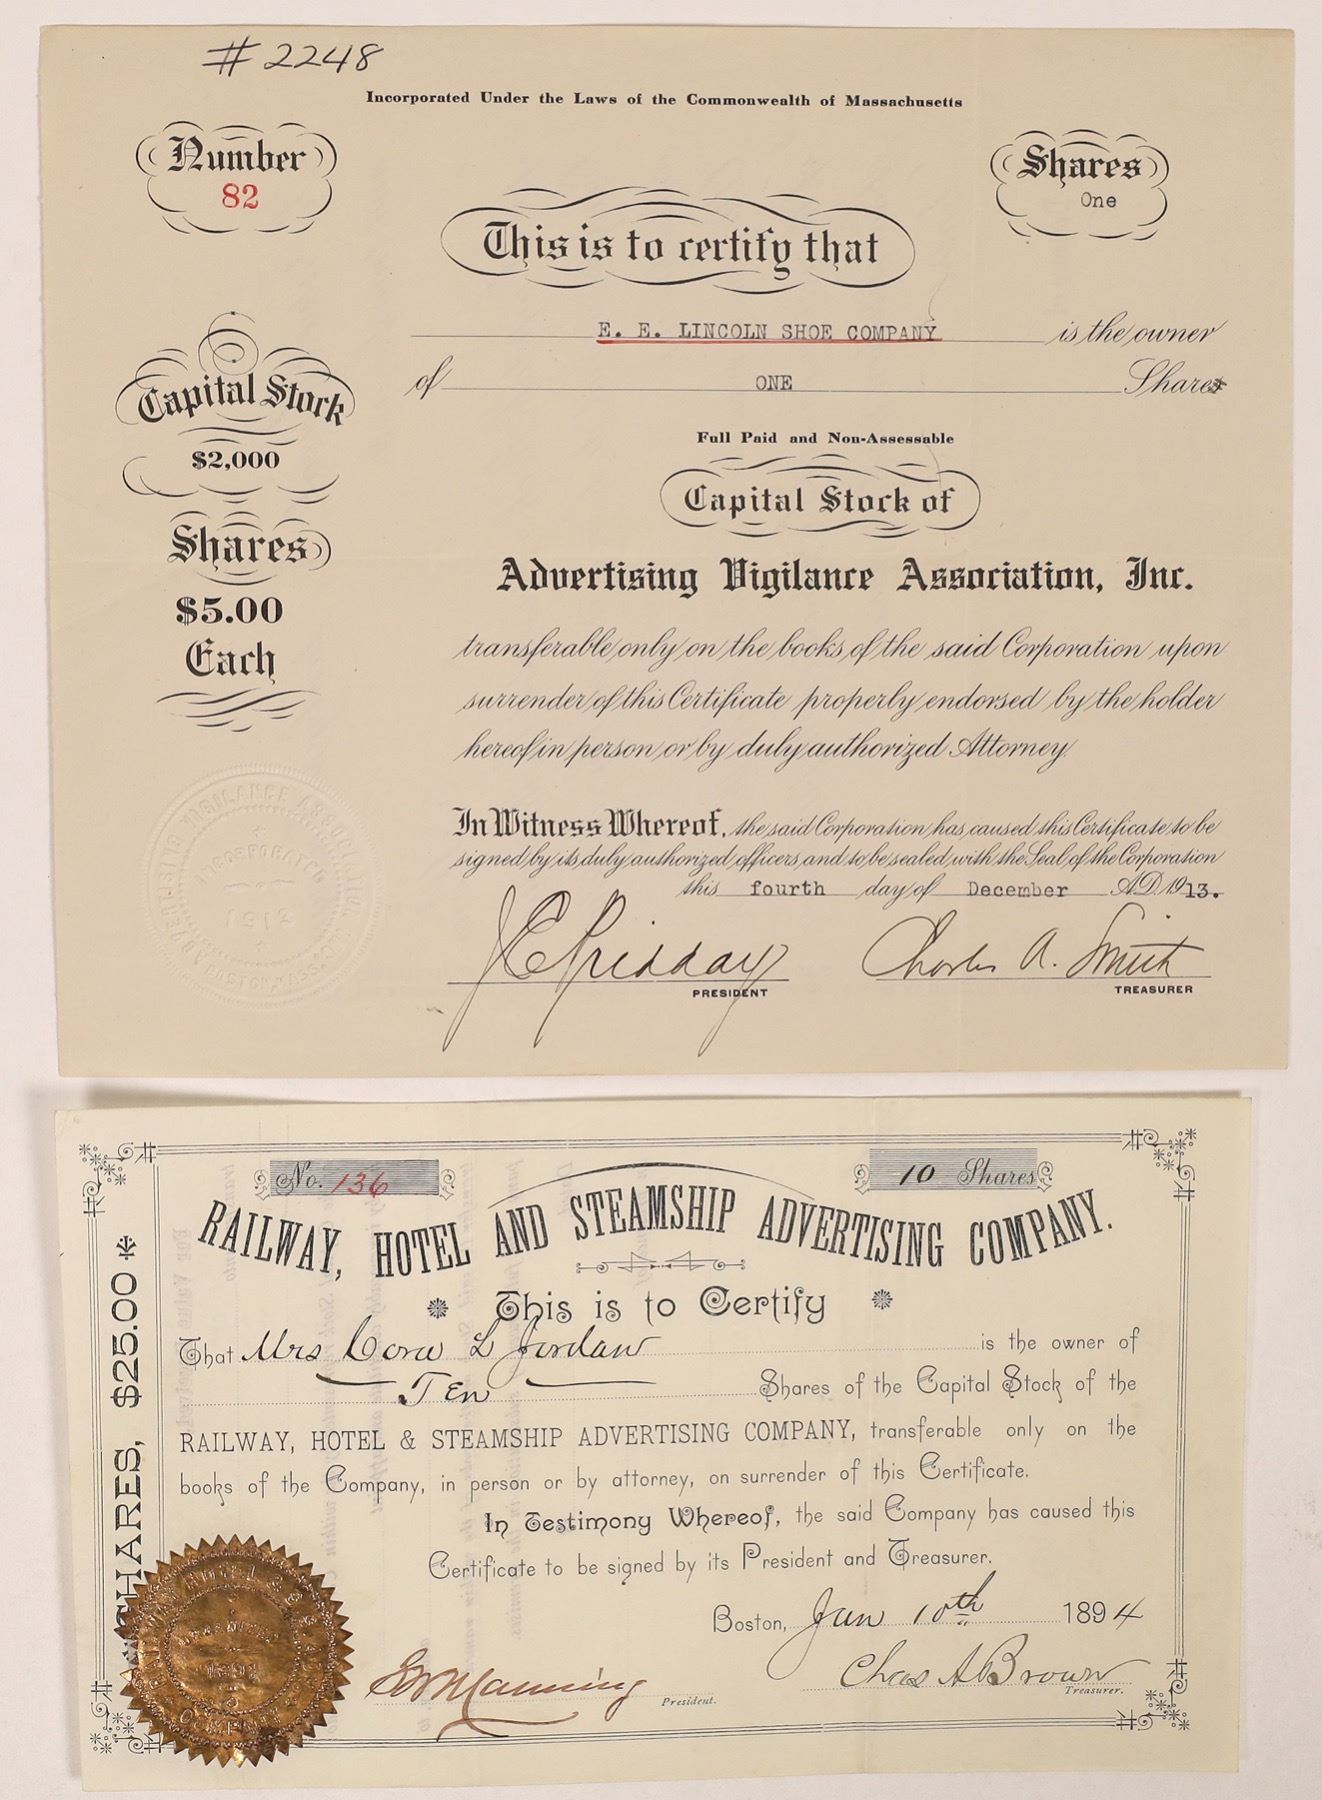 #2248
Incorporated Under the Laws of the Commonwealth of Massachusetts
Number
82
Shares
One
This is to certify that
E. E. LINCOLN SHOE COMPANY is the owner
of ONE Shares
Capital Stock
$2,000
Shares
$5.00
Each
Full Paid and Non-Assessable
Capital Stock of
Advertising Vigilance Association, Inc.
transferable only on the books of the said Corporation upon
surrender of this Certificate properly endorsed by the holder
hereof in person or by duly authorized Attorney.
In Witness Whereof, the said Corporation has caused this Certificate to be
signed by its duly authorized officers and to be sealed with the Seal of the Corporation
this fourth day of December A.D. 1913.
ADVERTISING VIGILANCE ASSOCIATION
INCORPORATED
J E Pridday
PRESIDENT
Charles A. Smith
TREASURER
No. 136
10 Shares
RAILWAY, HOTEL AND STEAMSHIP ADVERTISING COMPANY.
This is to Certify
That Mrs Cora L Jordan is the owner of
Ten Shares of the Capital Stock of the
RAILWAY, HOTEL & STEAMSHIP ADVERTISING COMPANY, transferable only on the
books of the Company, in person or by attorney, on surrender of this Certificate.
In Testimony Whereof, the said Company has caused this
Certificate to be signed by its President and Treasurer.
Boston, Jan 10th 1894
Manning
President.
Chas A Brown
Treasurer.
SHARES, $25.00
RAILWAY HOTEL
COMPANY